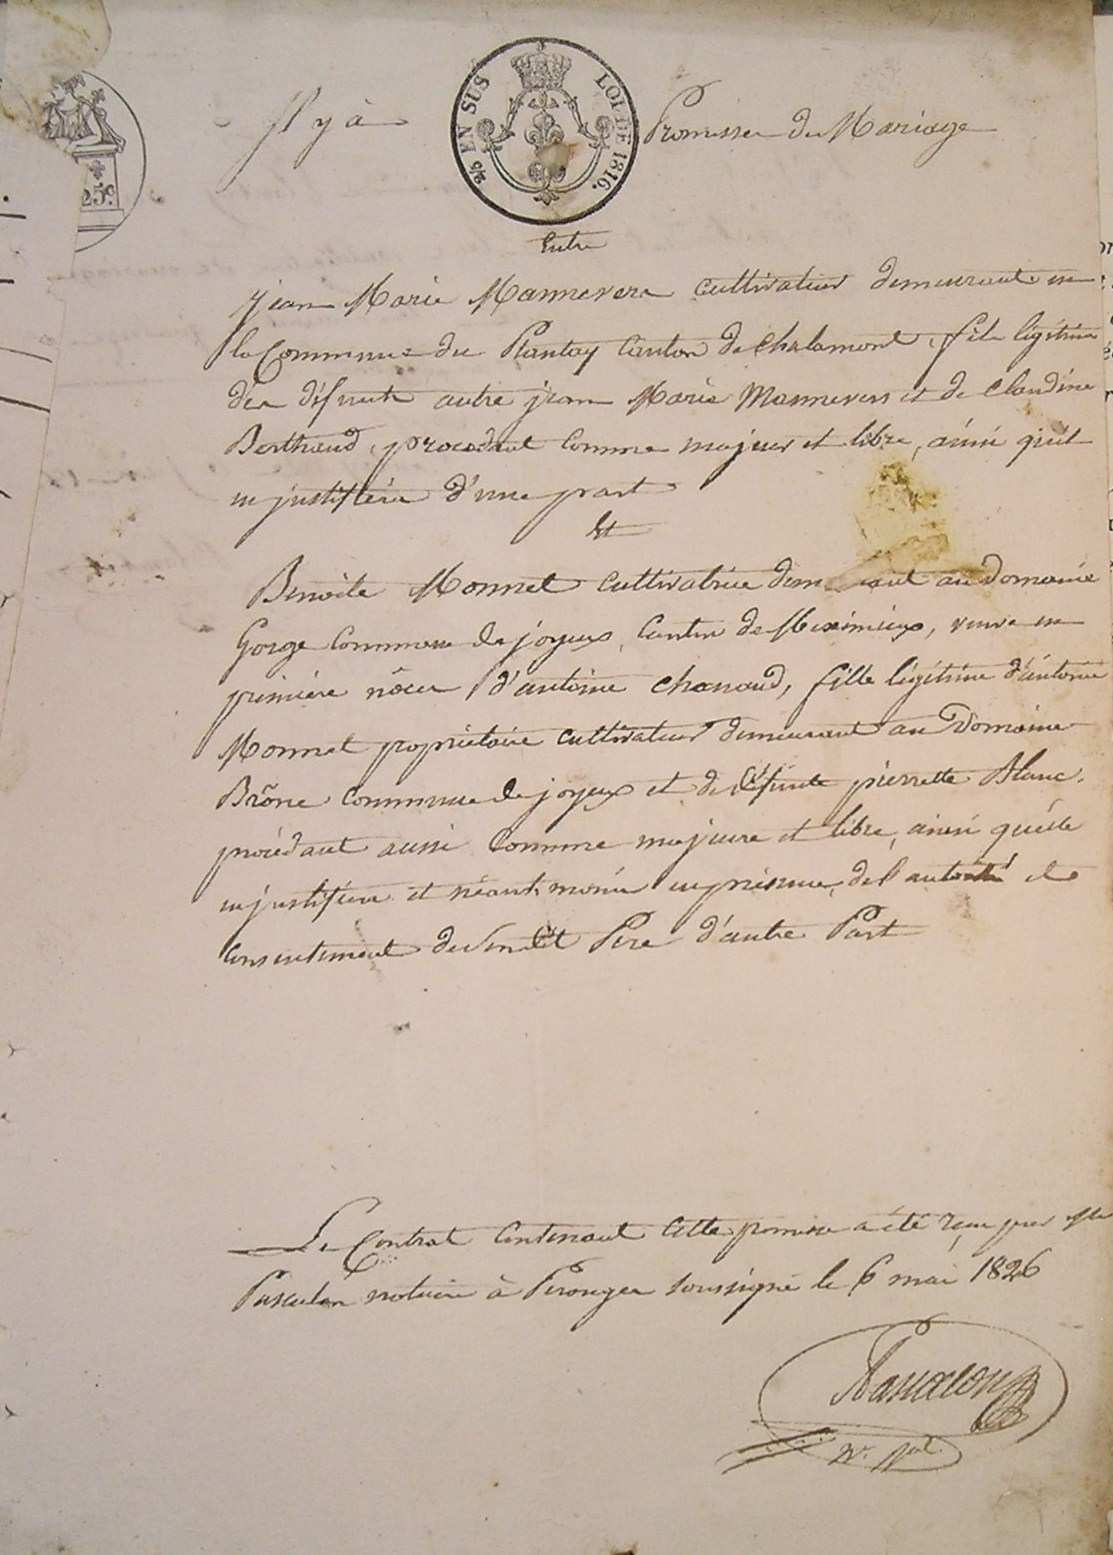 2/5 EN SUS LOI DE 1816.
25c
Il y à Promesse de Mariage
Entre
jean Marie Mannevere cultivateur demeurant en
la Commune du Plantay Canton de chalamont, fils légitime
des défunts autre jean Marie Mannevers et de Claudine
Berthaud, procedant comme majeur et libre, ainsi qu'il
en justifiera d'une part
Et
Benoite Monnet cultivatrice dem ant au Domaine
Gorge commune de joyeux, Canton de Meximieux, veuve en
première nôces d'antoine Chanaud, fille légitime d'antoine
Monnet propriétaire cultivateur demeurant au Domaine
Brône commune de joyeux et de défunte pierrette Blanc.
procédant aussi comme majeure et libre, ainsi quéelle
en justifiera et néant moins en présence, de l'autorité et
consentement de sondit Père d'autre Part
Le Contrat contenant cette promesse a été reçu par Me
Pascalon notaire à Pérouges soussigné le 6 mai 1826
Pascalon